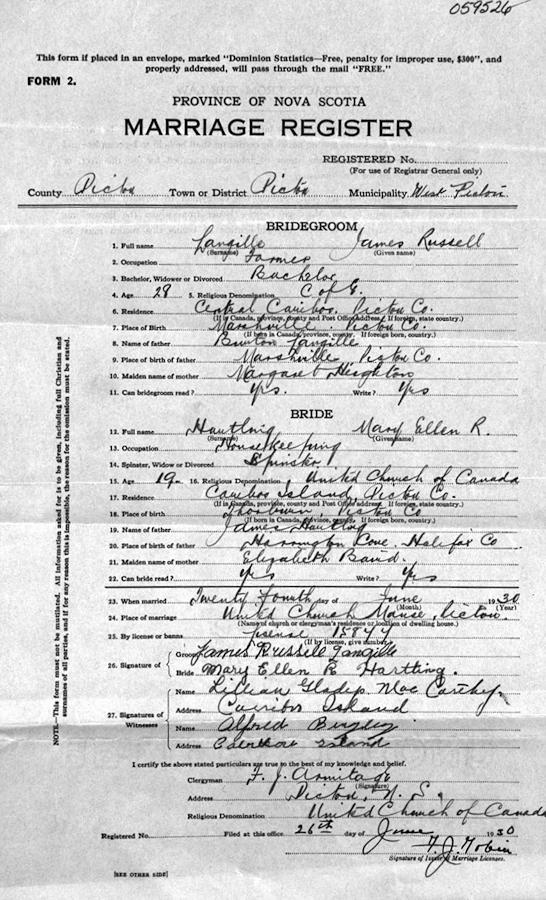 059526
This form if placed in an envelope, marked "Dominion Statistics—Free, penalty for improper use, $300", and
properly addressed, will pass through the mail "FREE."
FORM 2.
PROVINCE OF NOVA SCOTIA
MARRIAGE REGISTER
REGISTERED No.
(For use of Registrar General only)
County Pictou Town or District Pictou Municipality West Pictou
BRIDEGROOM
1. Full name Langille James Russell
(Surname) (Given name)
2. Occupation Farmer
3. Bachelor, Widower or Divorced Bachelor
4. Age 28 5. Religious Denomination C of E.
6. Residence Central Caribou, Pictou Co.
(If in Canada, province, county and Post Office Address. If foreign, state country.)
7. Place of Birth Marshville Pictou Co.
(If born in Canada, province, county. If foreign, country.)
8. Name of father Burton Langille
9. Place of birth of father Marshville, Pictou Co.
10. Maiden name of mother Margaret Heighton
11. Can bridegroom read? Yes. Write? Yes
BRIDE
12. Full name Hartling Mary Ellen R.
(Surname) (Given name)
13. Occupation Housekeeping
14. Spinster, Widow or Divorced Spinster
15. Age 19 16. Religious Denomination United Church of Canada
17. Residence Caribou Island, Pictou Co.
(If in Canada, province, county and Post Office address. If foreign, state country.)
18. Place of birth Thorburn, Pictou Co
(If born in Canada, province, county. If foreign, country.)
19. Name of father James Hartling
20. Place of birth of father Harrington Cove, Halifax Co
21. Maiden name of mother Elizabeth Baird.
22. Can bride read? Yes Write? Yes
23. When married Twenty Fourth day of June 1930
(Month) (Year)
24. Place of marriage United Church Manse, Pictou
(Name of church or clergyman's residence or location of dwelling house.)
25. By license or banns License 15844
(If by license, give number)
26. Signature of Groom James Russell Langille
Bride Mary Ellen R Hartling.
27. Signatures of Witnesses
Name Lillian Gladys Mac Carthey.
Address Caribou Island
Name Alfred
Address Island
I certify the above stated particulars are true to the best of my knowledge and belief.
Clergyman F. J. Armitage
(Signature)
Address Pictou, N. S.
Religious Denomination United Church of Canada
Registered No. Filed at this office 26th day of June 1930
Signature of Issuer of Marriage Licenses.
[SEE OTHER SIDE]
NOTE—This form must not be mutilated. All information asked for is to be given, including full Christian and
surnames of all parties, and if for any reason this is impossible, the reason for the omission must be stated.